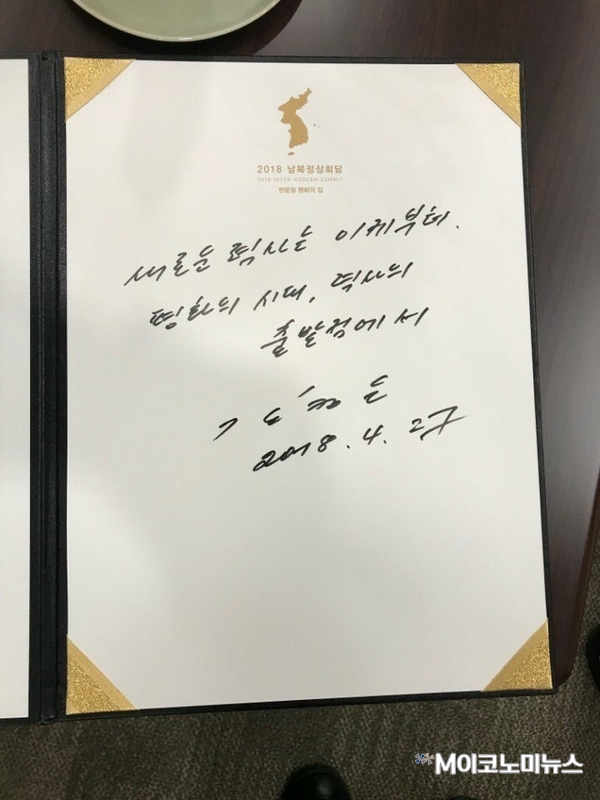 2018 남북정상회담
2018 INTER-KOREAN SUMMIT
판문점 평화의 집
새로운 력사는 이제부터.
평화의 시대, 력사의
출발점에서
김정은
2018. 4. 27
M이코노미뉴스